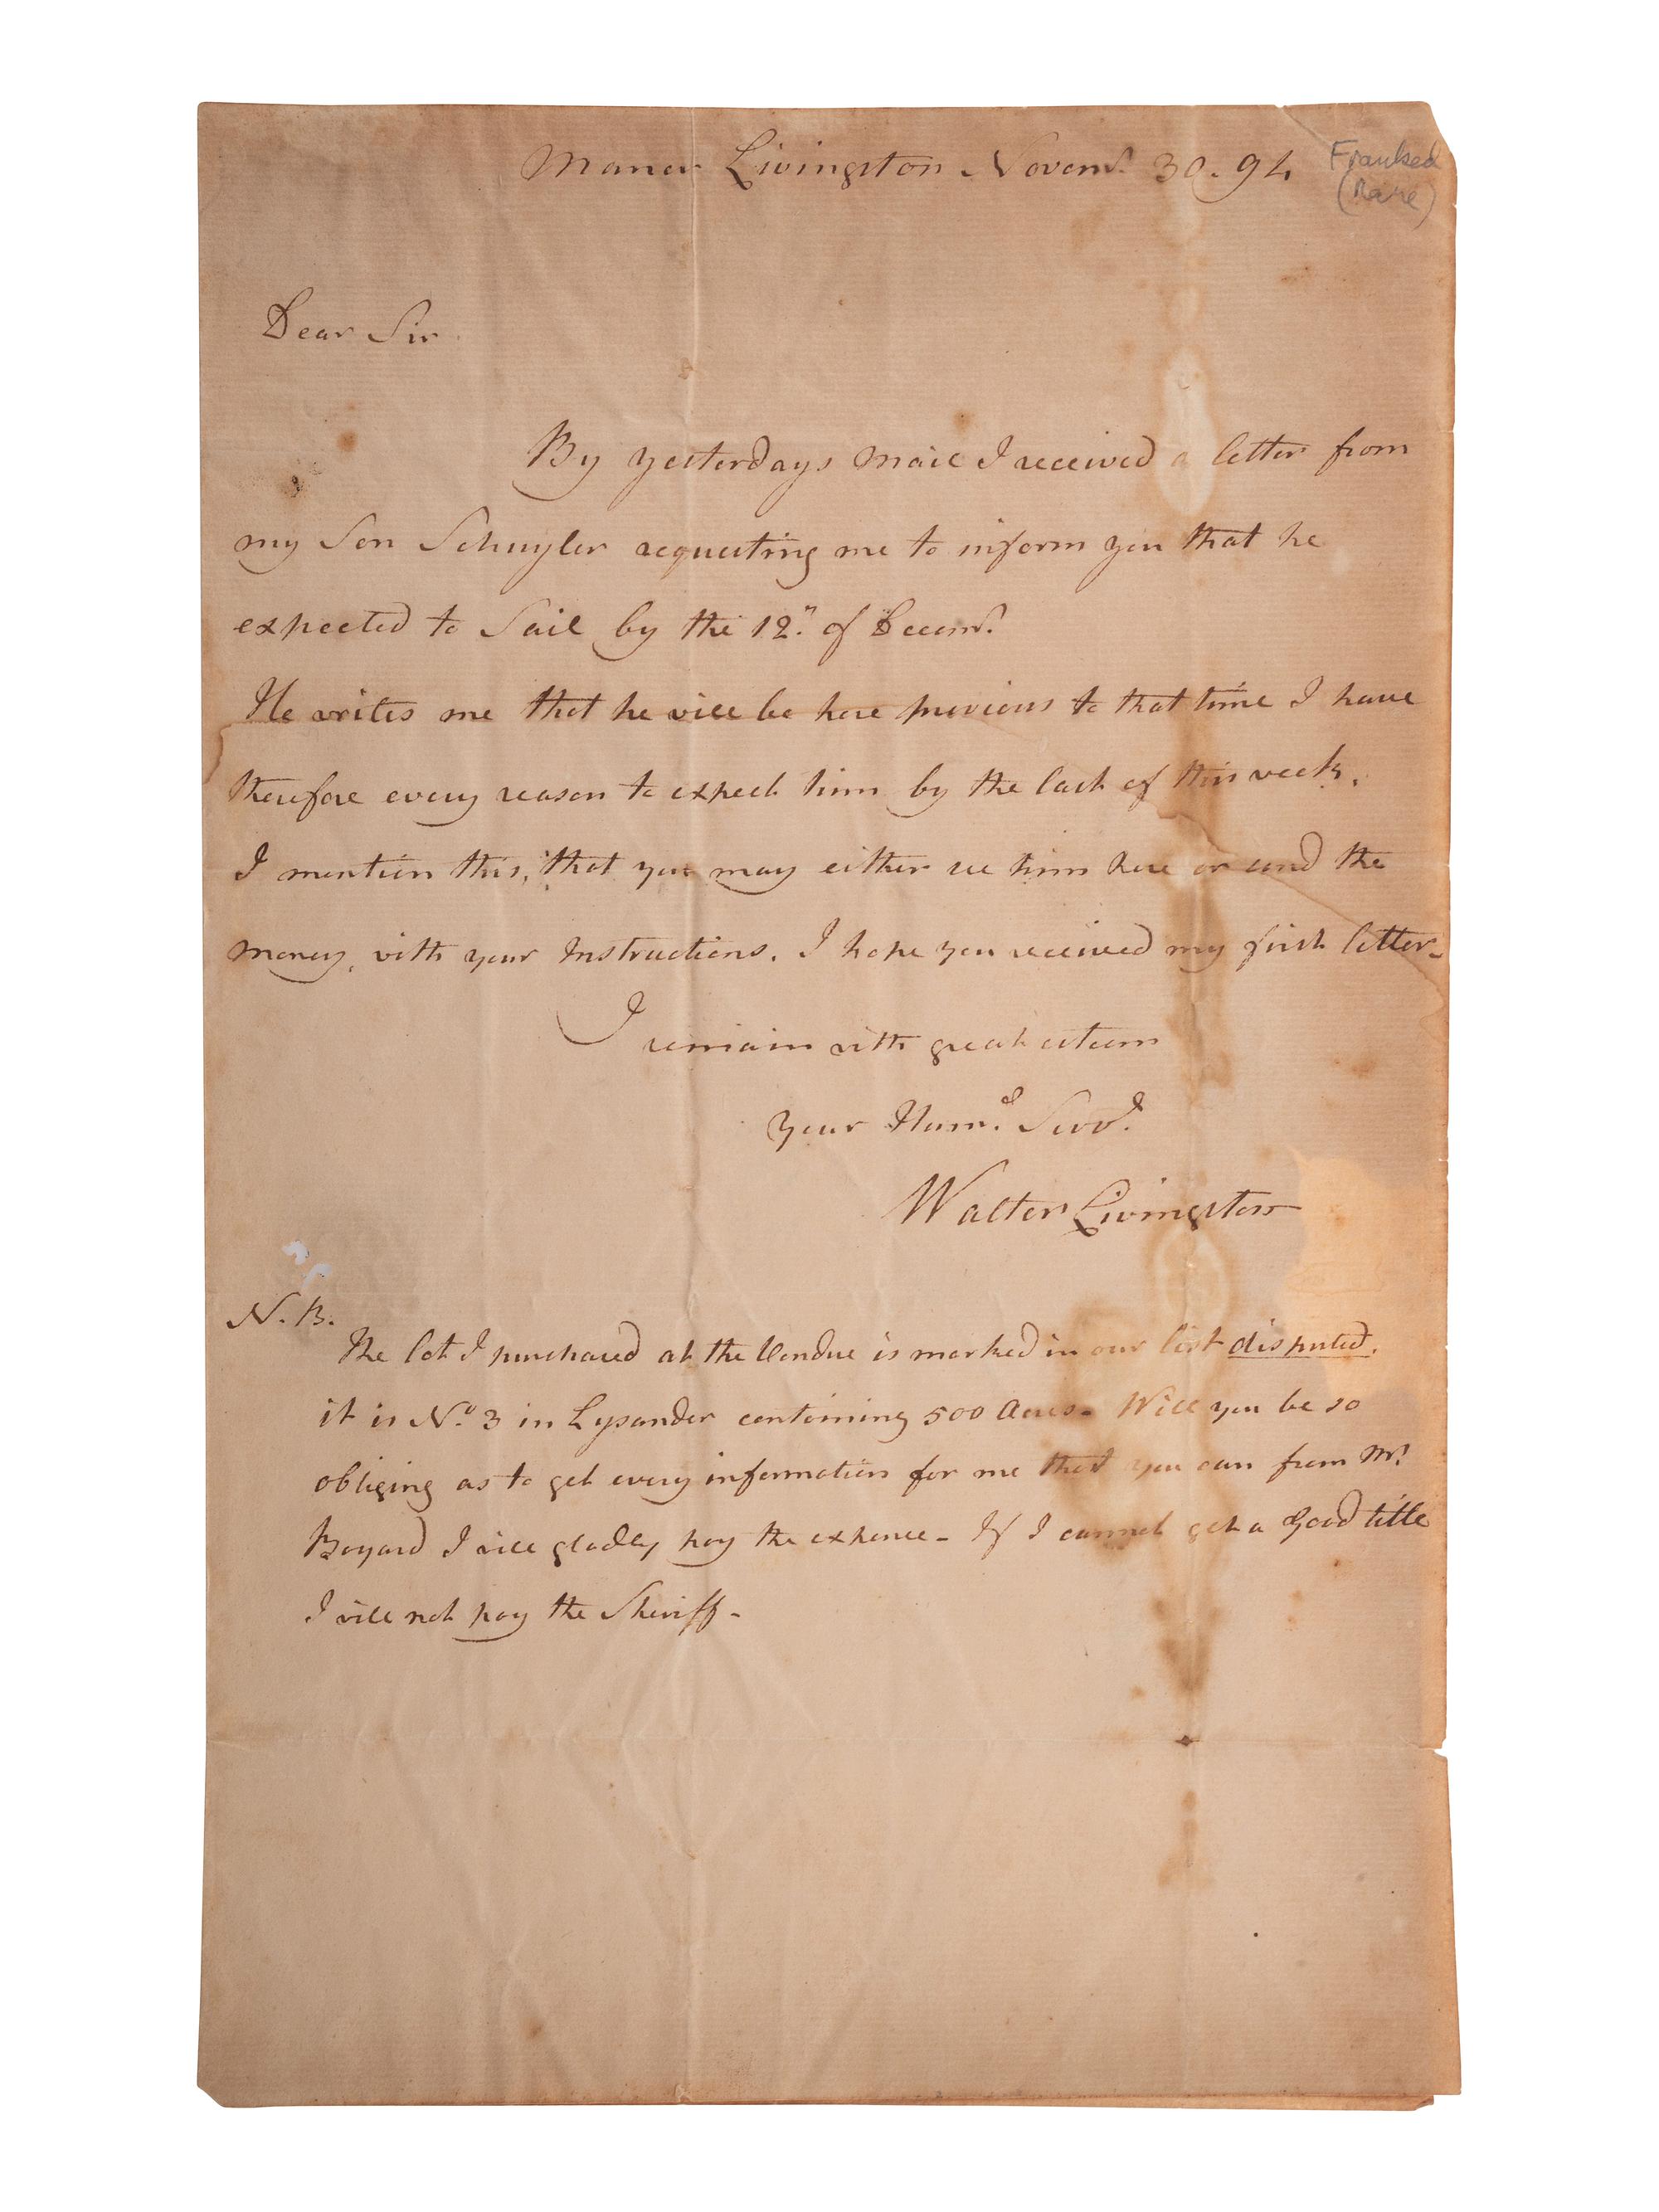 Manor Livingston Novemr. 30. 94
Franked
(Rare)
Dear Sir
By yesterdays Mail I received a letter from
my Son Schuyler requesting me to inform you that he
expected to Sail by the 12" of Decemr.
He writes me that he will be here previous to that time I have
therefore every reason to expect him by the last of this week.
I mention this, that you may either see him here or send the
money, with your Instructions. I hope you received my first letter-
I remain with great esteem
Your Hume. Servt.
Walter Livingston
N. B.
The lot I purchased at the Vendue is marked in our list disputed.
it is No. 3 in Lysander containing 500 Acres- Will you be so
obliging as to get every information for me that you can from Mr.
Bayard I will gladly pay the expence - If I cannot get a Good title
I will not pay the Sheriff-